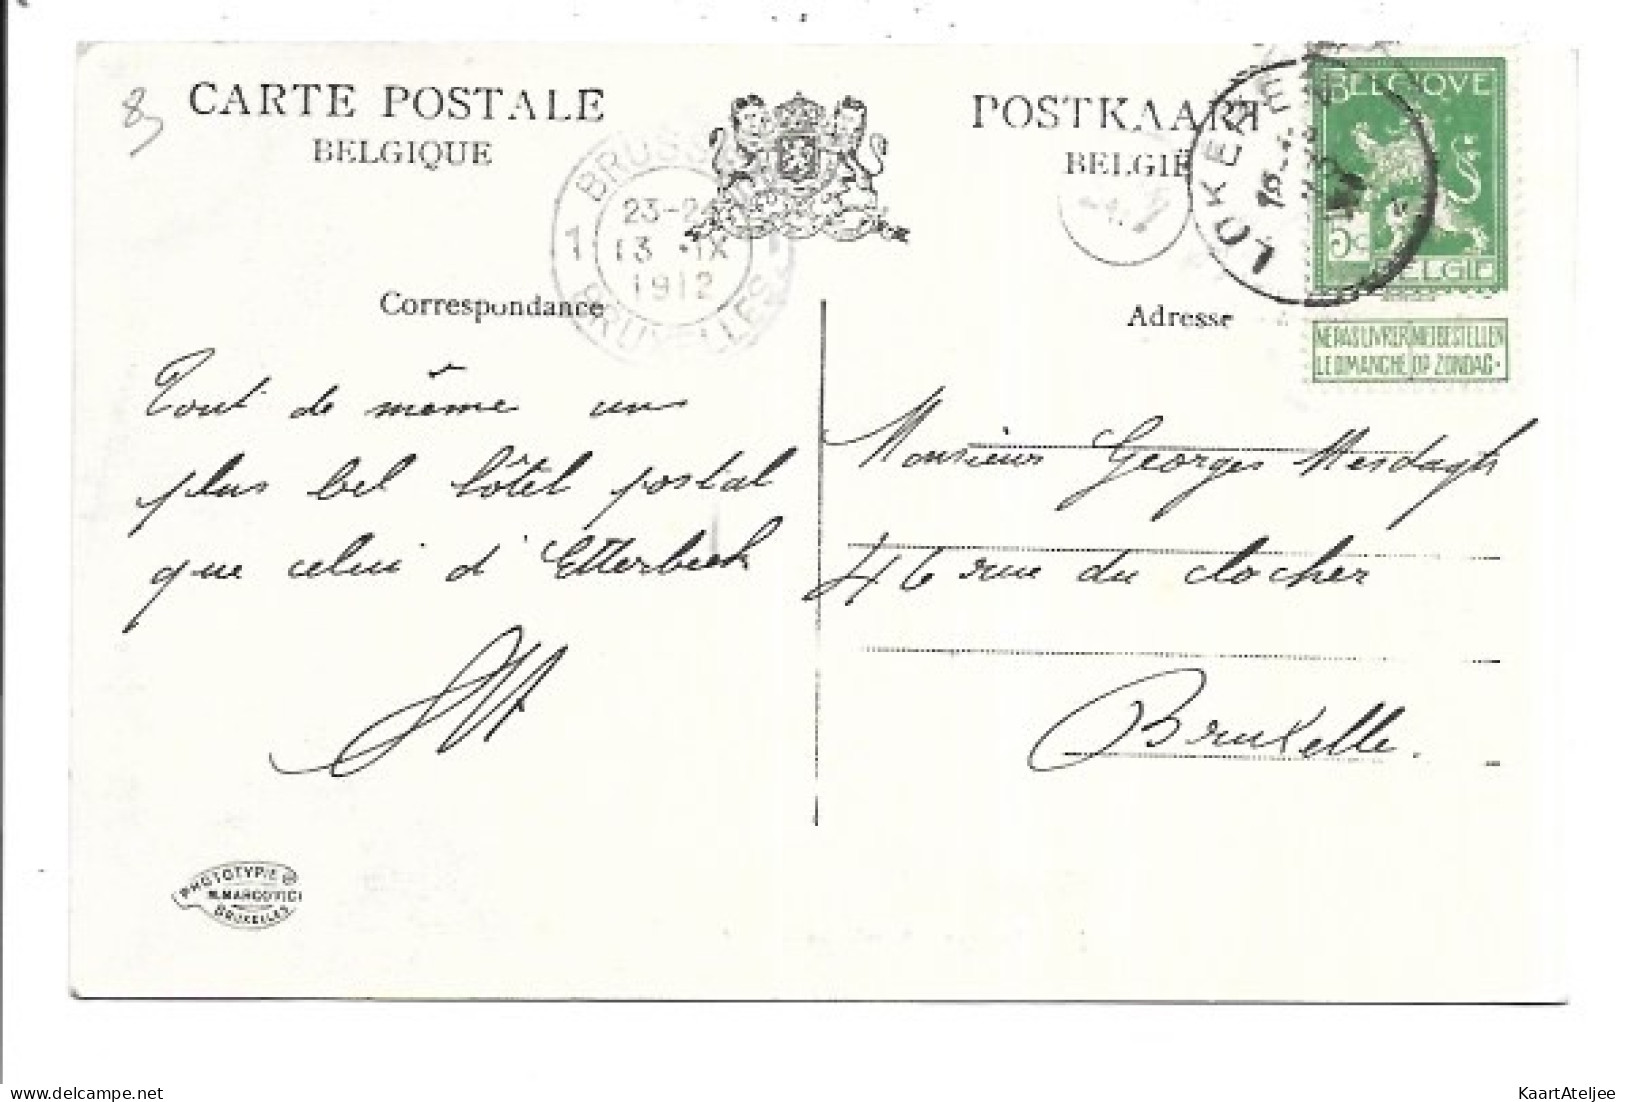 83
CARTE POSTALE
BELGIQUE
POSTKAART
BELGIË
BRUSS
23-2
1
13 · IX
1912
BRUXELLES
LOKEREN
BELGIQUE
5c
BELGIE
NE PAS LIVRER NIET BESTELLEN
LE DIMANCHE OP ZONDAG.
Correspondance
Adresse
Tout de même un
plus bel hôtel postal
que celui d'Etterbeek
Monsieur Georges Mesdagh
46 rue du clocher
Bruxelle.
PHOTOTYPIE
M. MARCOVICI
BRUXELLES
delcampe.net
KaartAteljee